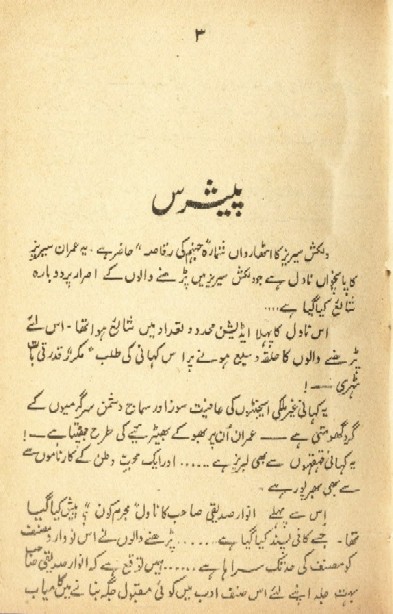 ۳
پیشرس
دلکش سیریز کا اٹھارواں شمارہ "جہنم کی رقاصہ" حاضر ہے۔ یہ عمران سیریز
کا پانچواں ناول ہے جو دلکش سیریز میں پڑھنے والوں کے اصرار پر دوبارہ
شائع کیا گیا ہے....
اس ناول کا پہلا ایڈیشن محدود تعداد میں شائع ہوا تھا۔ اس لئے
پڑھنے والوں کا حلقہ وسیع ہونے پر اس کہانی کی طلب "مکرر" قدرتی بات
ٹھہری ——!
یہ کہانی غیر ملکی ایجنٹوں کی عافیت سوز اور سماج دشمن سرگرمیوں کے
گرد گھومتی ہے —— عمران اُن پر بھوکے بھیڑیے کی طرح جھپٹتا ہے —!
یہ کہانی قہقہوں سے بھی لبریز ہے ...... اور ایک محب وطن کے کارناموں سے
سے بھی بھرپور ہے
اِس سے پہلے انوار صدیقی صاحب کا ناول "مجرم کون" پیش کیا گیا
تھا۔ جسے کافی پسند کیا گیا ہے....... پڑھنے والوں نے اس نووارد مصنف
کو مصنف کی حد تک سراہا ہے...... ہمیں توقع ہے کہ انوار صدیقی صاحب
بہت جلد اپنے لئے اس صنف ادب میں کوئی مقبول جگہ بنا نے میں کامیاب